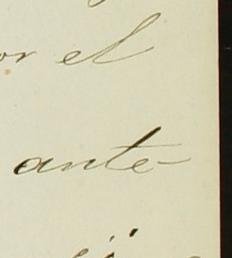 or el
ante-